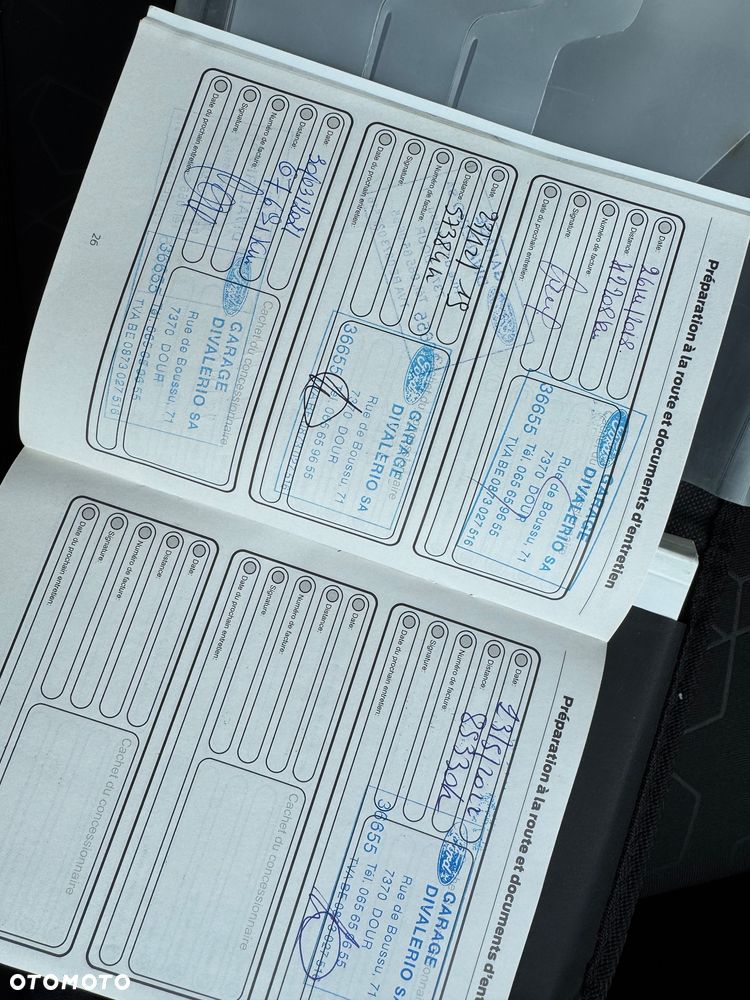 Préparation à la route et documents d'entretien
Date:
Distance:
Numéro de facture:
Signature:
Date du prochain entretien:
GARAGE
DIVALERIO SA
Rue de Boussu, 71
7370 DOUR
36655 Tél. 065 65 96 55
TVA BE 0873 027 516
Date:
Distance:
Numéro de facture:
Signature:
Date du prochain entretien:
GARAGE
DIVALERIO SA
Rue de Boussu, 71
7370 DOUR
36655 Tél. 065 65 96 55
Date: 30/03/2021
Distance: 67691 km
Numéro de facture:
Signature:
Date du prochain entretien:
Cachet du concessionnaire
GARAGE
DIVALERIO SA
Rue de Boussu, 71
7370 DOUR
36655 Tél. 065 65 96 55
TVA BE 0873 027 516
26
Préparation à la route et documents d'en
Date: 23/5/2022
Distance:
Numéro de facture:
Signature:
Date du prochain entretien:
Ford
GARAGE
DIVALERIO SA
Rue de Boussu, 71
7370 DOUR
36655 Tél. 065 65 96 55
Date:
Distance:
Numéro de facture:
Signature:
Date du prochain entretien:
Cachet du concessionnaire
Date:
Distance:
Numéro de facture:
Signature:
Date du prochain entretien:
Cachet du concessionnaire
OTOMOTO